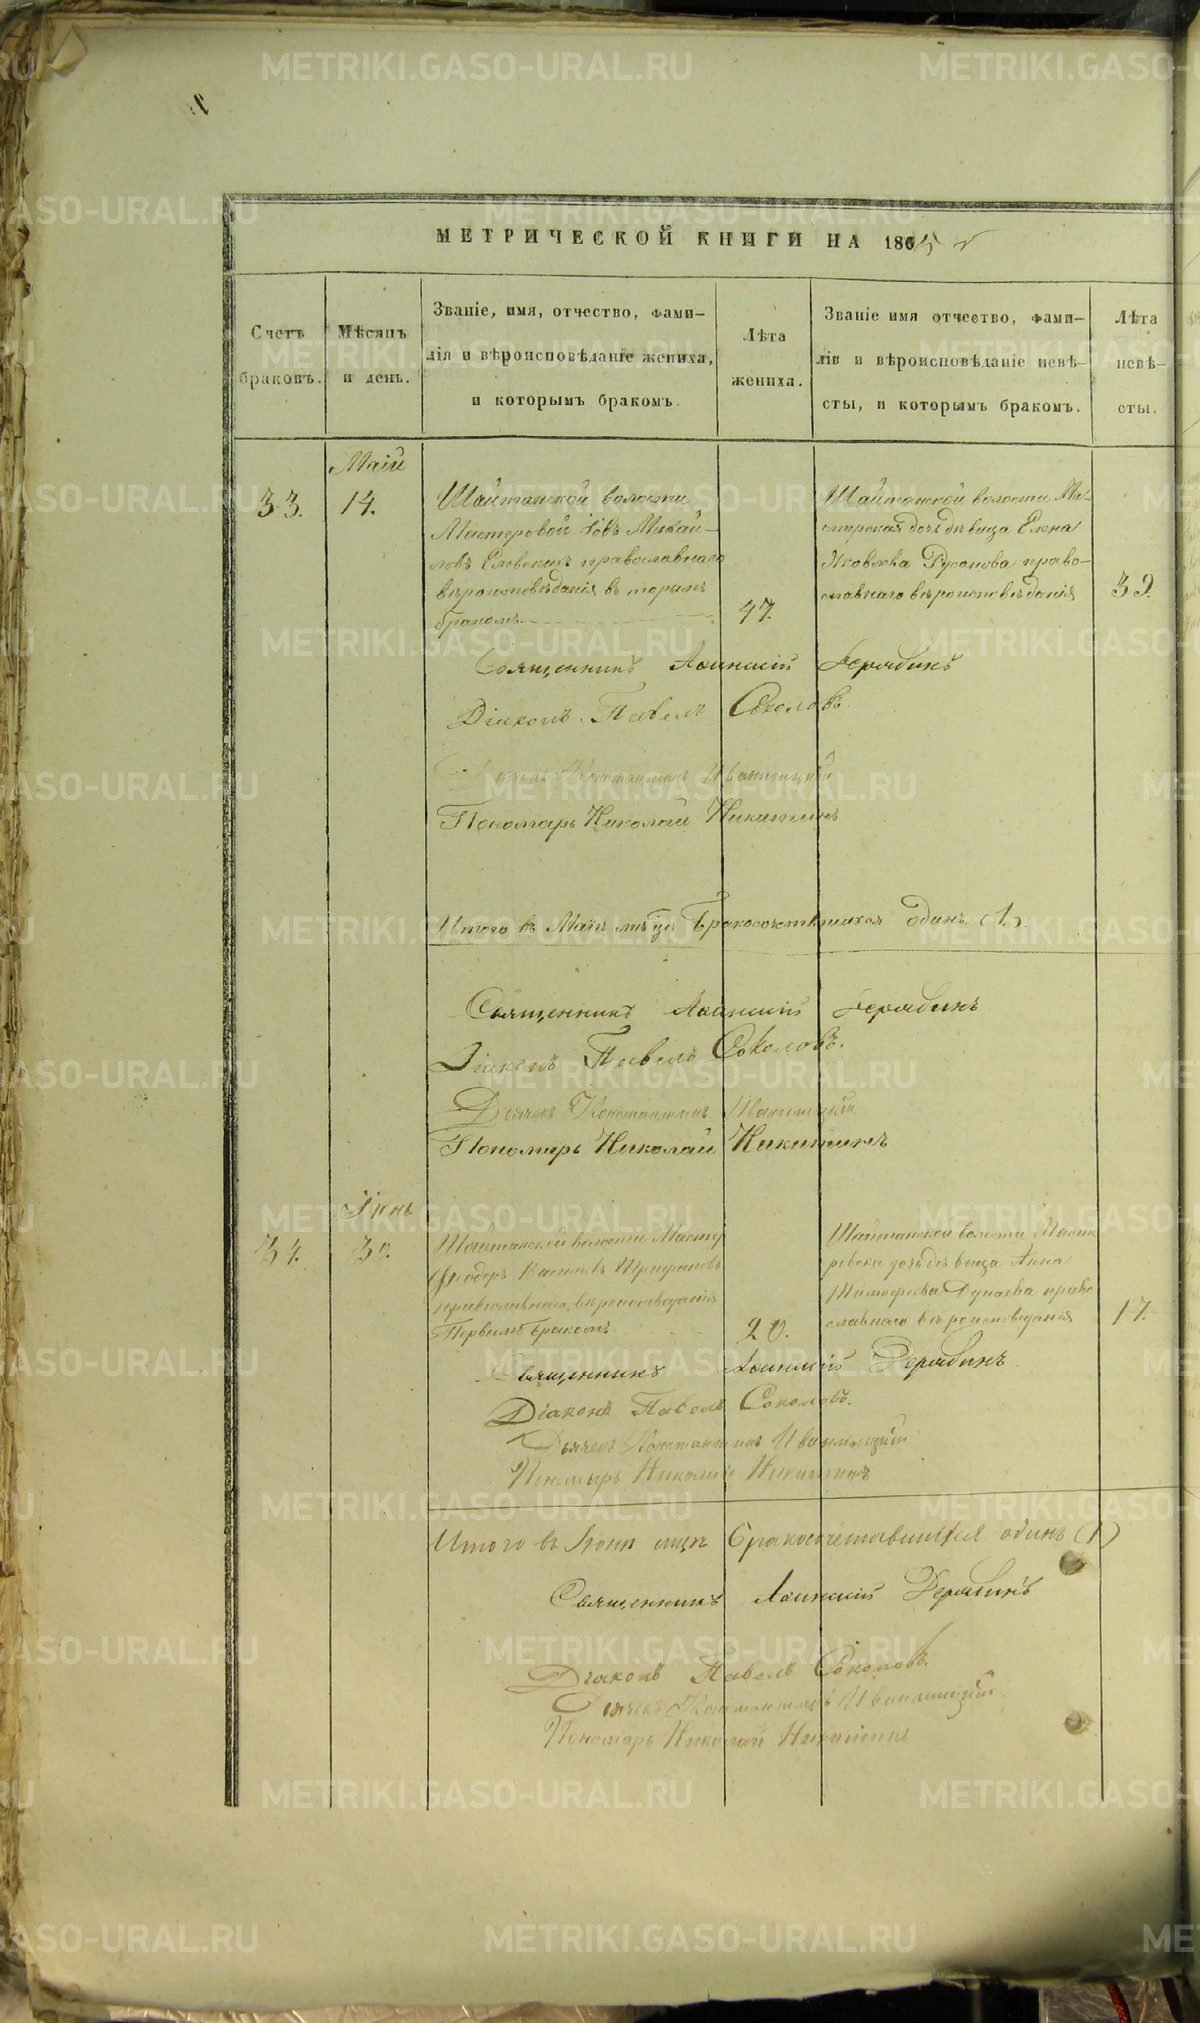 МЕТРИЧЕСКОЙ КНИГИ НА 1865 г
Счетъ браковъ.
Мѣсяцъ и день.
Званіе, имя, отчество, фами-
лія и вѣроисповѣданіе жениха,
и которымъ бракомъ.
Лѣта
жениха.
Званіе имя отчество, фами-
лія и вѣроисповѣданіе невѣ-
сты, и которымъ бракомъ.
Лѣта
невѣ-
сты.
Маій
33.
14.
Шайтанской волости
Мастеровой Іовъ Михай-
ловъ православнаго
вѣроисповѣданія, вторымъ
бракомъ.
47.
Шайтанской волости Ма-
стерская дочь дѣвица Елена
Яковлева Русанова право-
славнаго вѣроисповѣданія
39.
Священникъ Дерябинъ
Діаконъ Павелъ Соколовъ
Дьячекъ Константинъ
Пономарь Николай Никитинъ
Итого въ Маіѣ мѣсяцѣ бракосочетавшихся одинъ (1).
Священникъ Дерябинъ
Діаконъ Павелъ Соколовъ.
Дьячекъ Константинъ
Пономарь Николай Никитинъ
Іюнь
34.
30.
Шайтанской волости Масте
Ѳеодоръ Васильевъ Трифановъ
православнаго вѣроисповеданія
Первымъ бракомъ
20.
Шайтанской волости Масте
ровска дочь дѣвица Анна
Тимофеева Дунаева право
славнаго вѣроисповеданія
17.
Священникъ Дерябинъ
Діаконъ Павелъ Соколовъ.
Дьячекъ Константинъ
Пономарь Николай Никитинъ
Итого въ Іюнѣ мцѣ бракосочетавшихся одинъ (1)
Священникъ Дерябинъ
Діаконъ Павелъ Соколовъ.
Дьячекъ Константинъ
Пономарь Николай Никитинъ
METRIKI.GASO-URAL.RU